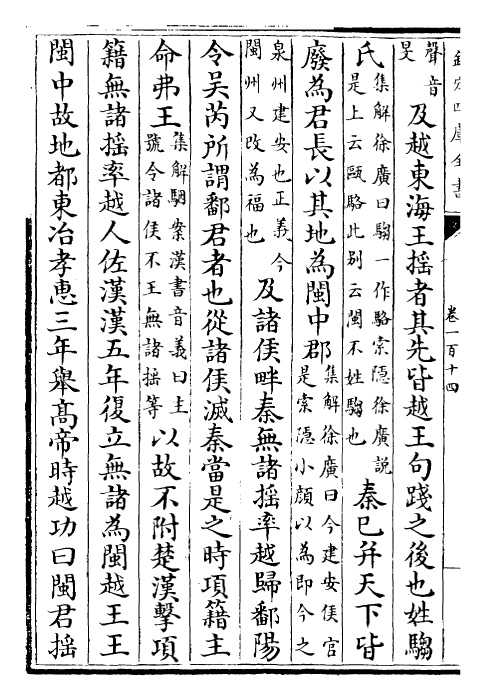 欽定四庫全書
卷一百十四
聲音
旻
及越東海王揺者其先皆越王句踐之後也姓騶
氏
集解徐廣曰騶一作駱索隠徐廣説
是上云甌駱此别云閩不姓騶也
秦已并天下皆
廢為君長以其地為閩中郡
集解徐廣曰今建安侯官
是索隠小顔以為即今之
泉州建安也正義今
閩州又改為福也
及諸侯畔秦無諸揺率越歸鄱陽
令吴芮所謂鄱君者也從諸侯滅秦當是之時項籍主
命弗王
集解駰案漢書音義曰主
號令諸侯不王無諸揺等
以故不附楚漢擊項
籍無諸揺率越人佐漢漢五年復立無諸為閩越王王
閩中故地都東冶孝惠三年舉髙帝時越功曰閩君揺